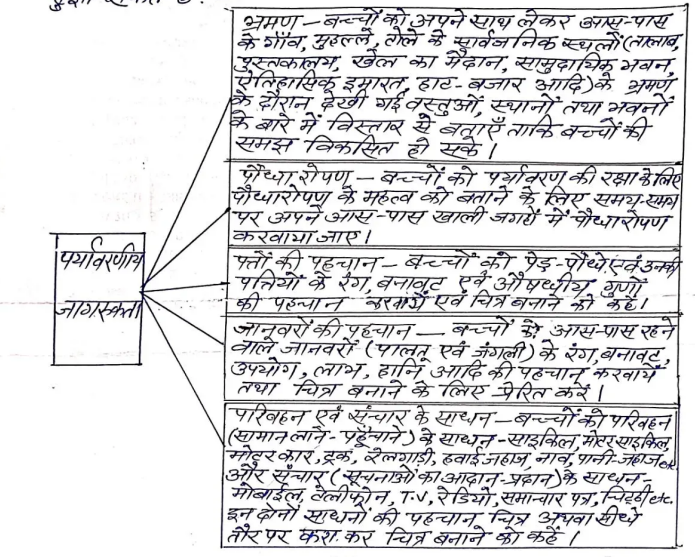 भ्रमण – बच्चों को अपने साथ लेकर आस-पास
के गाँव, मुहल्ले, टोले के सार्वजनिक स्थलों (तालाब,
पुस्तकालय, खेल का मैदान, सामुदायिक भवन,
ऐतिहासिक इमारत, हाट-बजार आदि) के भ्रमण
के दौरान देखी गई वस्तुओं, स्थानों तथा भवनों
के बारे में विस्तार से बताएँ ताकि बच्चों की
समझ विकसित हो सके।
पौधा रोपण – बच्चों को पर्यावरण की रक्षा के लिए
पौधारोपण के महत्व को बताने के लिए समय-समय
पर अपने आस-पास खाली जगहों में पौधारोपण
करवाया जाए।
पर्यावरणीय
जागरुकता
पत्तों की पहचान – बच्चों को पेड़-पौधे एवं उनकी
पत्तियों के रंग, बनावट एवं औषधीय गुणों
की पहचान करवायें एवं चित्र बनाने को कहें।
जानवरों की पहचान – बच्चों को आस-पास रहने
वाले जानवरों (पालतू एवं जंगली) के रंग, बनावट,
उपयोग, लाभ, हानि आदि की पहचान करवायें
तथा चित्र बनाने के लिए प्रेरित करें।
परिवहन एवं संचार के साधन – बच्चों को परिवहन
(सामान लाने-पहुँचाने) के साधन-साइकिल, मोटर साइकिल,
मोटर कार, ट्रक, रेलगाड़ी, हवाई जहाज, नाव, पानी-जहाज etc
और संचार (सूचनाओं का आदान-प्रदान) के साधन-
मोबाईल, टेलीफोन, T.V, रेडियो, समाचार पत्र, चिट्ठी etc.
इन दोनों साधनों की पहचान चित्र अथवा सीधे
तौर पर करा कर चित्र बनाने को कहें।